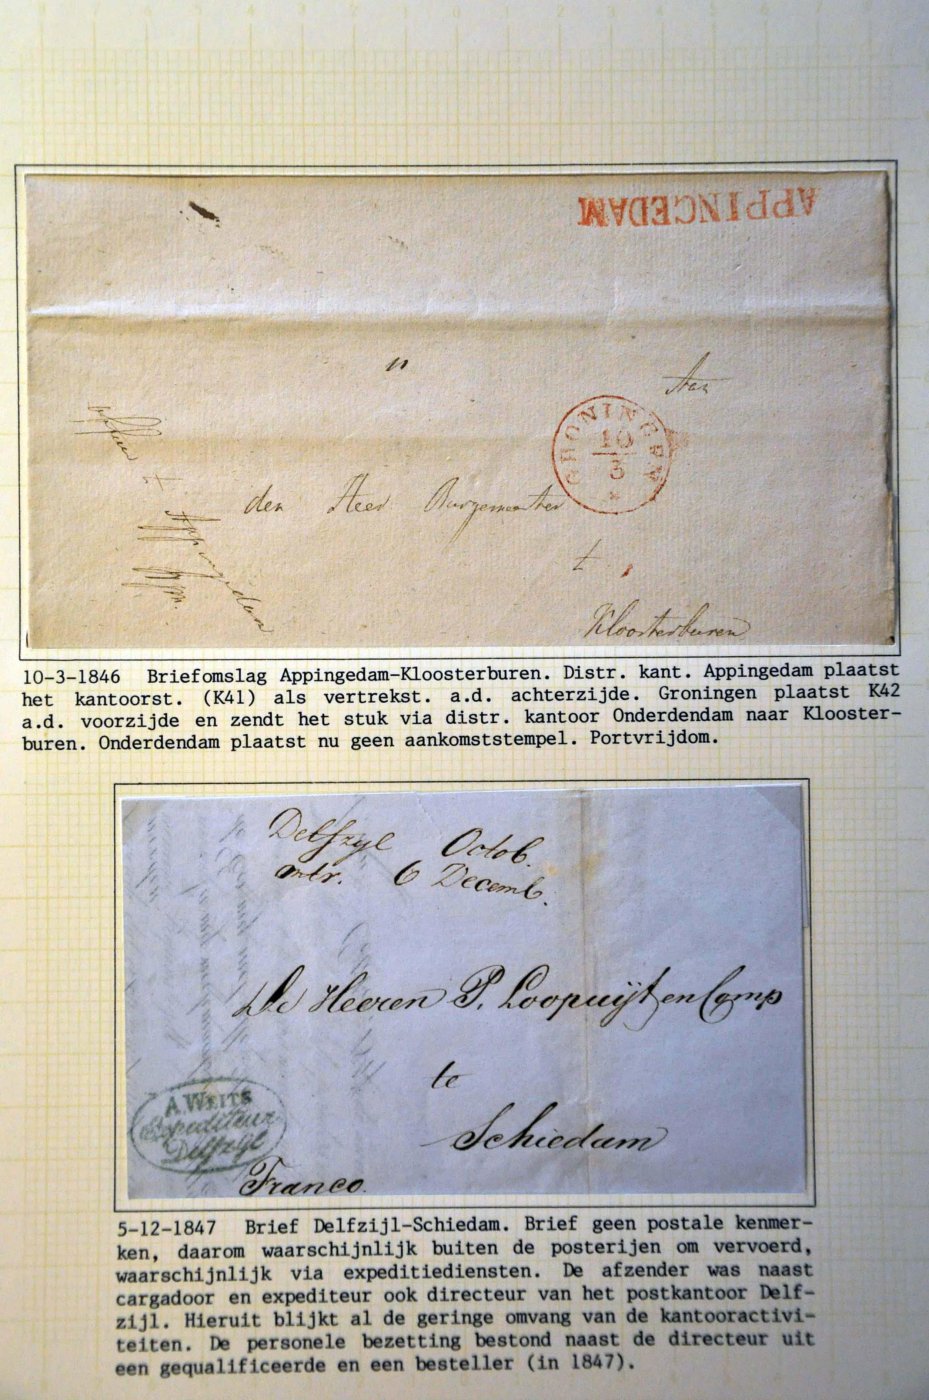 APPINGEDAM
Aan
GRONINGEN
10
3
den Heer Burgemeester
t
Appingedam
Kloosterburen
10-3-1846 Briefomslag Appingedam-Kloosterburen. Distr. kant. Appingedam plaatst
het kantoorst. (K41) als vertrekst. a.d. achterzijde. Groningen plaatst K42
a.d. voorzijde en zendt het stuk via distr. kantoor Onderdendam naar Klooster-
buren. Onderdendam plaatst nu geen aankomststempel. Portvrijdom.
Delfzyl Octob.
ontr. 6 Decemb.
De Heeren P. Loopuijt en Comp
te
Schiedam
A. WEITS
Expediteur
Delfzyl
Franco.
5-12-1847 Brief Delfzijl-Schiedam. Brief geen postale kenmer-
ken, daarom waarschijnlijk buiten de posterijen om vervoerd,
waarschijnlijk via expeditiediensten. De afzender was naast
cargadoor en expediteur ook directeur van het postkantoor Delf-
zijl. Hieruit blijkt al de geringe omvang van de kantooractivi-
teiten. De personele bezetting bestond naast de directeur uit
een gequalificeerde en een besteller (in 1847).